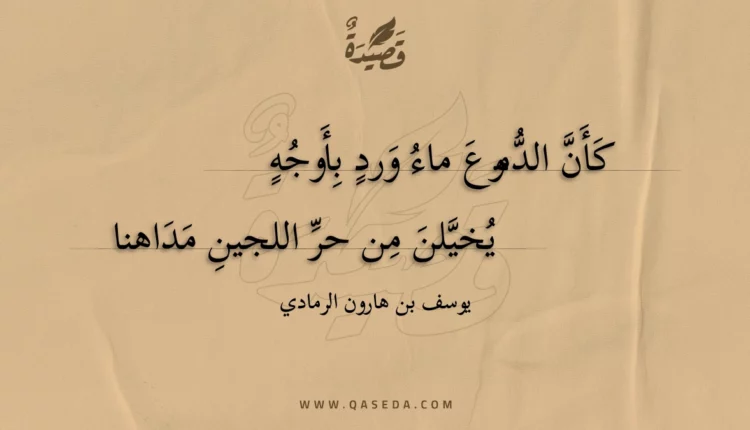 قَصِيْدَةٌ
كَأَنَّ الدُّموعَ ماءُ وَردٍ بِأَوجُهٍ
يُخيَّلنَ مِن حرِّ اللجينِ مَدَاهنا
يوسف بن هارون الرمادي
WWW.QASEDA.COM